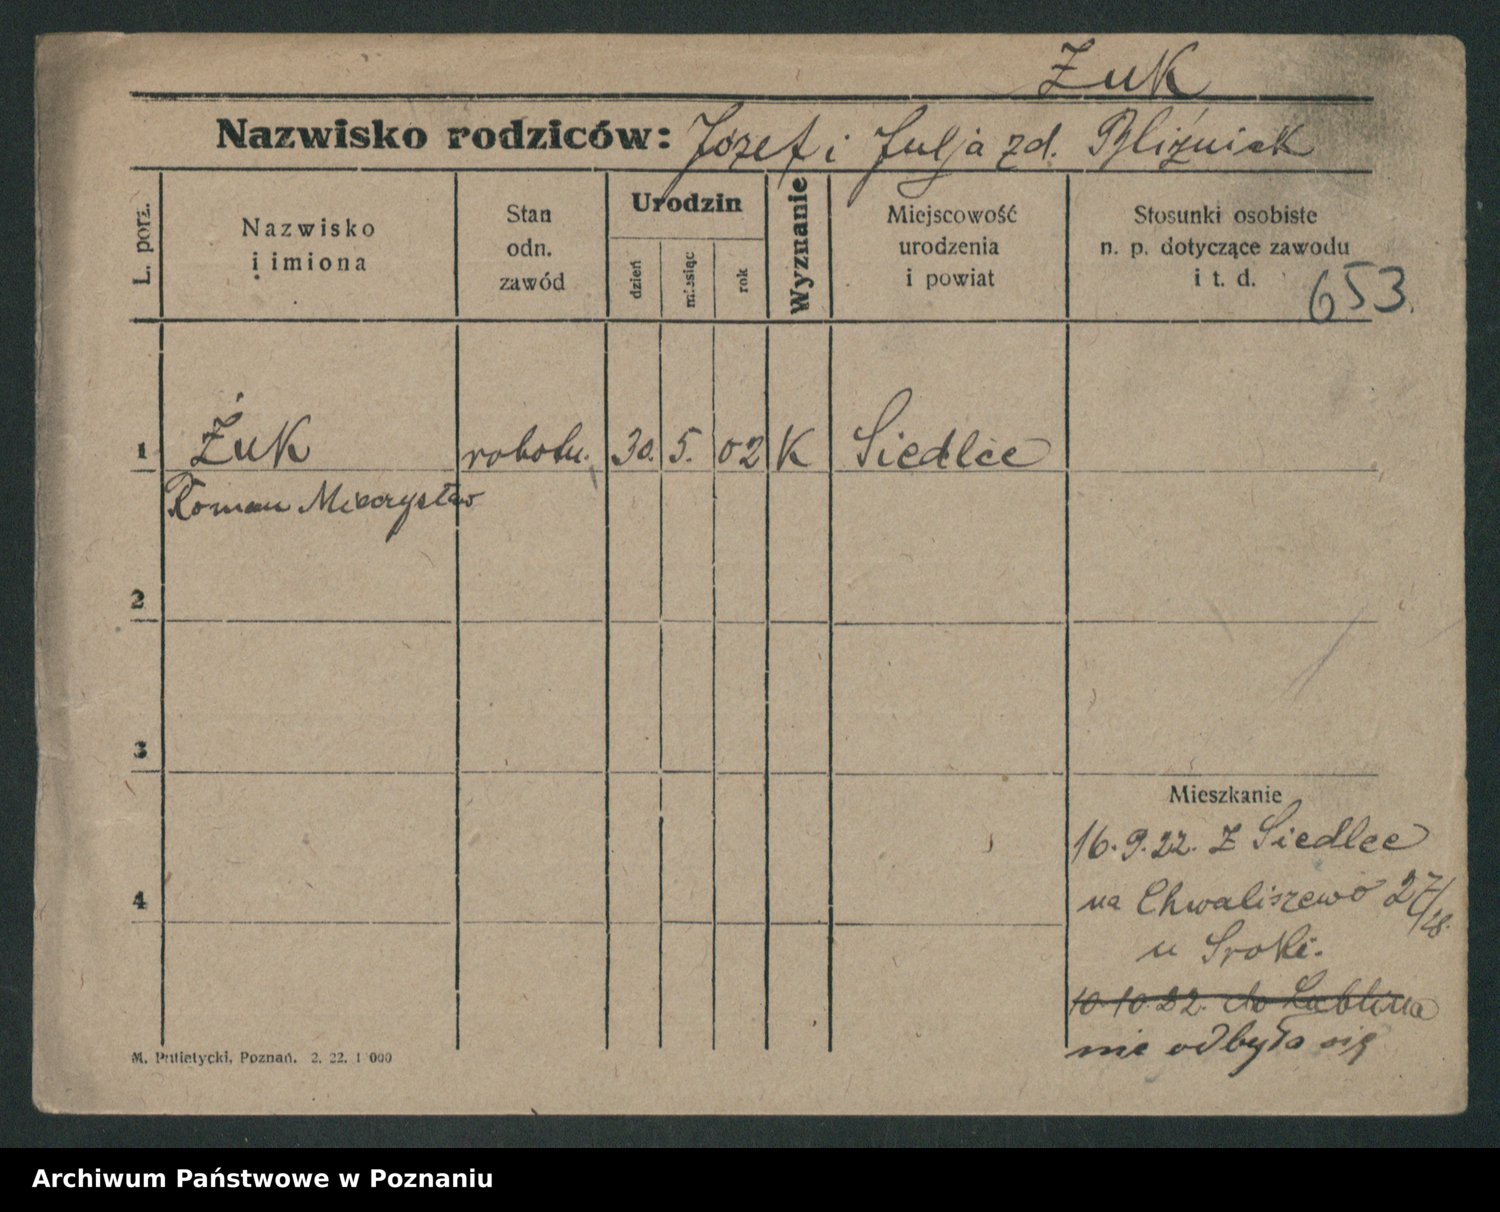 Żuk
Nazwisko rodziców: Józef i Julja zd. Bliźniak
L. porz.
Nazwisko
i imiona
Stan
odn.
zawód
Urodzin
dzień
miesiąc
rok
Wyznanie
Miejscowość
urodzenia
i powiat
Stosunki osobiste
n. p. dotyczące zawodu
i t. d.
653.
1 Żuk robotn. 30. 5. 02 K Siedlce
Roman Mieczysław
2
3
Mieszkanie
16.9.22. Z Siedlce
na Chwaliszewo 27/28.
4
u Sroki.
10.10.22. do Lublina
nie odbyła się
M. Putiatycki, Poznań. 2. 22. 1 000
Archiwum Państwowe w Poznaniu